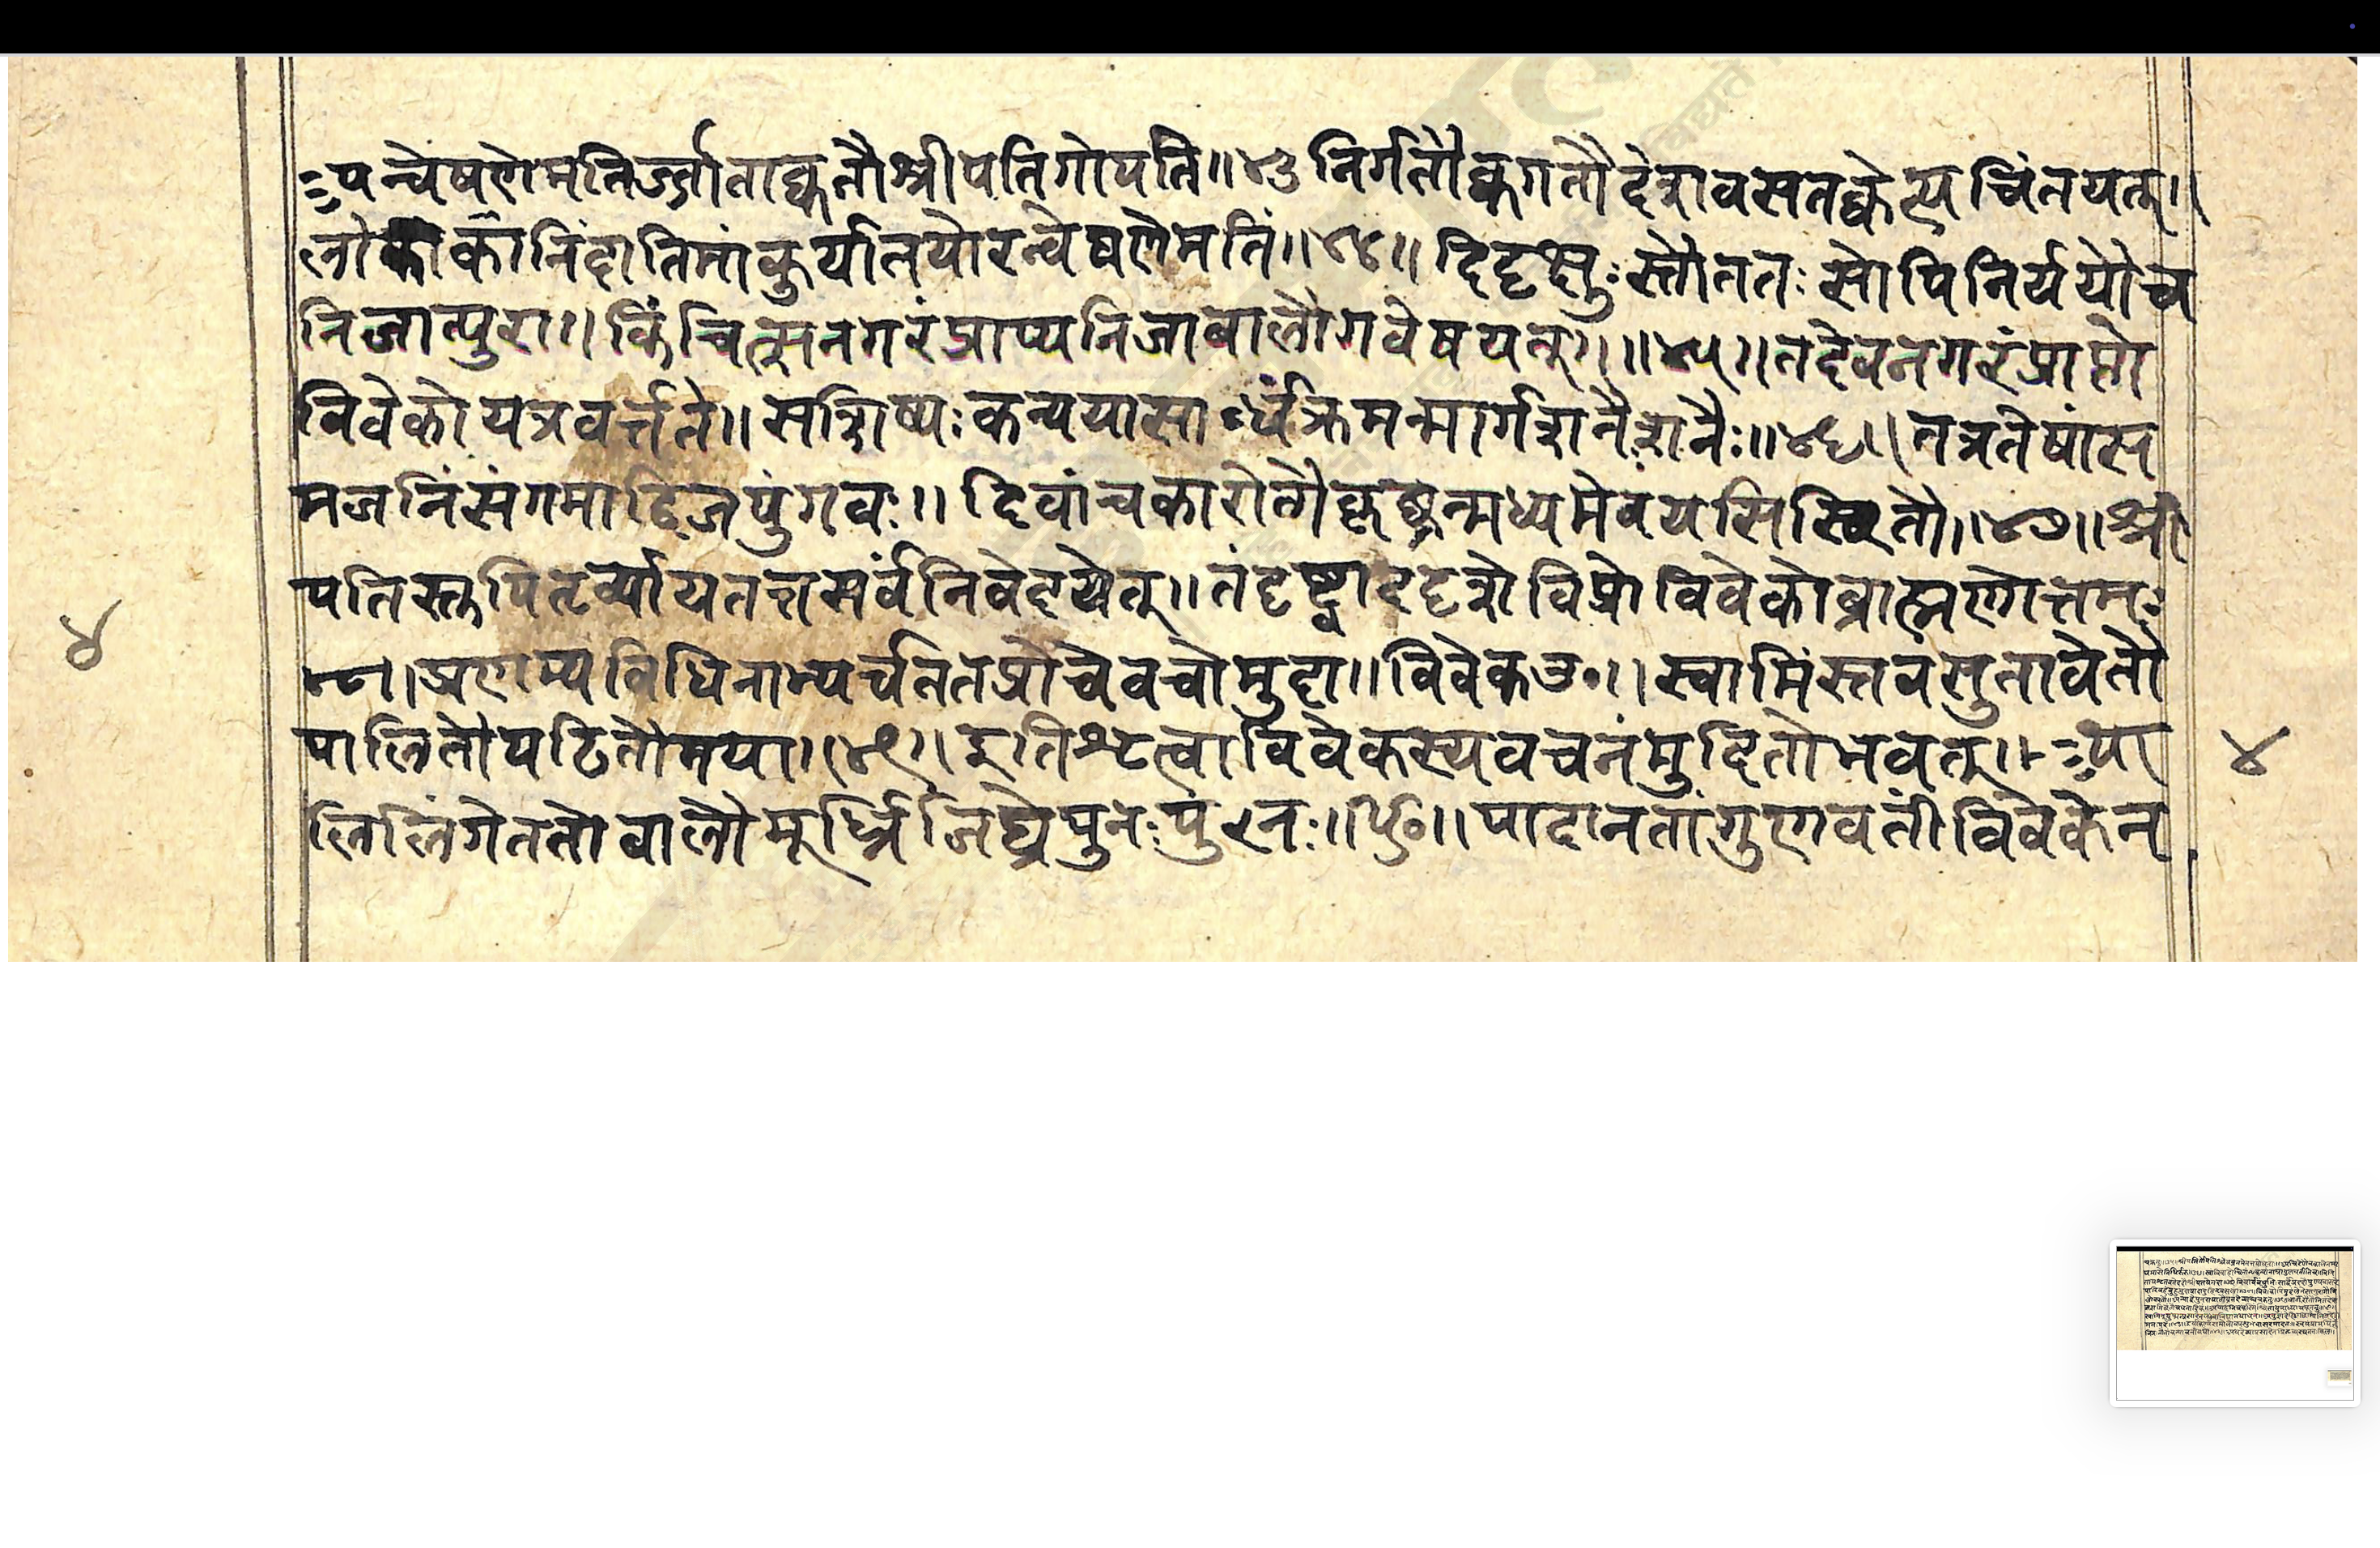 न्वेषणेमतिर्ज्जाताक्वतौश्रीपतिगोपती॥४३निर्गतौक्वगतौदेशावसतक्वेत्यचिंतयत्॥
लोकाकानिंदातिमांकुर्यात्तयोरन्वेषणेमतिं॥४४॥दिदृक्षुःस्तौततःसोपिनिर्ययौच
निजात्पुरा॥किंचित्सनगरंप्राप्यनिजाबालौगवेषयन्॥॥४५॥तदेवनगरंप्राप्तो
विवेकोयत्रवर्त्तते॥सशिष्यःकन्ययासार्धंक्रमन्मार्गशनैःशनैः॥४६॥तत्रतेषांस
मजनिंसंगमोद्विजपुंगवः॥
४७॥श्री
पतिस्तुपितृर्व्यायतत्तसर्वंनिवेदयेत्॥तंदृष्ट्वाददृशेविप्रोविवेकोब्राह्मणोत्तमः
४८॥प्रणम्यविधिनाभ्यर्चततप्रोचेवचोमुदा॥विवेकउ०॥स्वामिंस्तवसुतावेतौ
पालितौपठितौमया॥४९॥इतिश्रुत्वाविवेकस्यवचनंमुदितोभवत्॥
लिलिंगेततोबालौमूर्ध्निजिघ्रेपुनःपुनः॥५०॥पादानतांगुणवतींविवेकेन
४
४